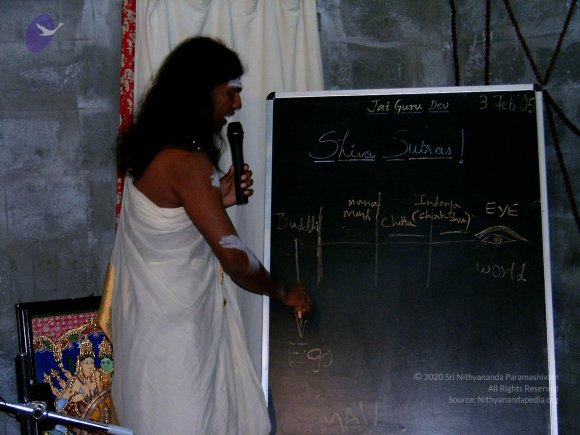 Jai Guru Dev 3 Feb '05
Shiva Sutras!
Buddhi mana mind Chitta Indriya (chakshu) EYE
world
Ego
© 2020 Sri Nithyananda Paramashivam
All Rights Reserved
Source: Nithyanandapedia.org